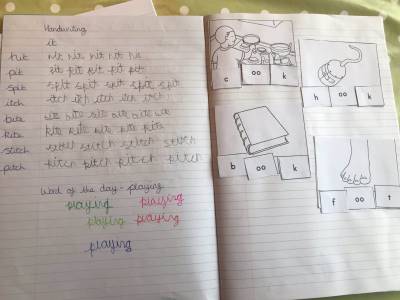 Handwriting
it
hit hit hit hit hit hit
pit pit pit pit pit pit
spit spit spit spit spit spit
itch itch itch itch itch itch
bite
kite kite kite kite kite kite
stitch stitch stitch stitch
pitch pitch pitch pitch pitch
Word of the day - playing
playing playing
playing playing
playing
c oo k
h oo k
b oo k
f oo t